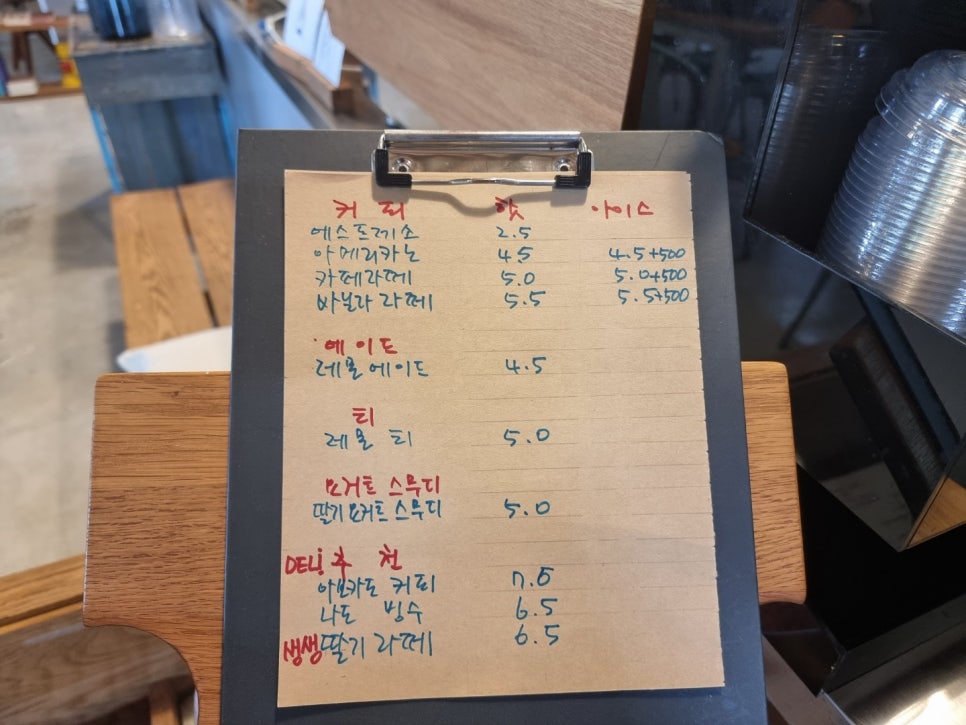 커 피 핫 아이스
에스프레소 2.5
아메리카노 4.5 4.5+500
카페라떼 5.0 5.0+500
바닐라 라떼 5.5 5.5+500
에이드
레몬에이드 4.5
티
레몬 티 5.0
요거트 스무디
딸기 요거트 스무디 5.0
DELi 추 천
아보카도 커피 7.5
나도 빙수 6.5
생생 딸기 라떼 6.5